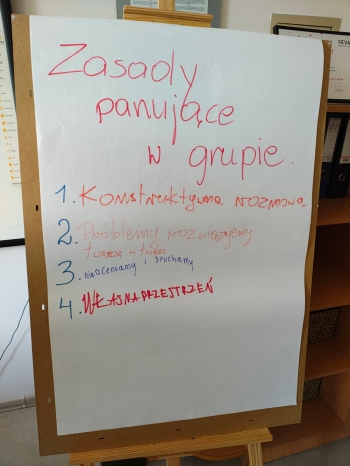 Zasady
panujące
w grupie.
1. Konstruktywna rozmowa
2. Problemy rozwiązujemy
twarzą w twarz
3. nieoceniamy i słuchamy
4. WŁASNA PRZESTRZEŃ